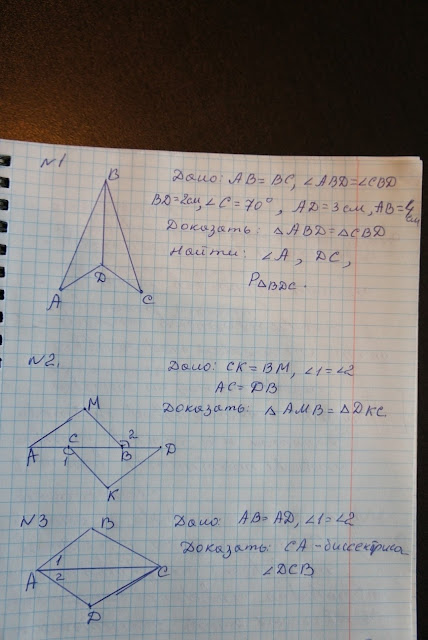 N1
Дано: AB = BC, ∠ABD=∠CBD
BD=2см, ∠C = 70°, AD = 3 см, AB=4 см
Доказать: △ABD=△CBD
Найти: ∠A, DC,
P△BDC.
B
D
A
C
N2.
Дано: CK = BM, ∠1=∠2
AC = DB
Доказать: △AMB = △DKC
M
A
C
1
2
B
D
K
N3
Дано: AB = AD, ∠1=∠2
Доказать: CA - биссектриса
∠DCB
B
1
2
A
C
D